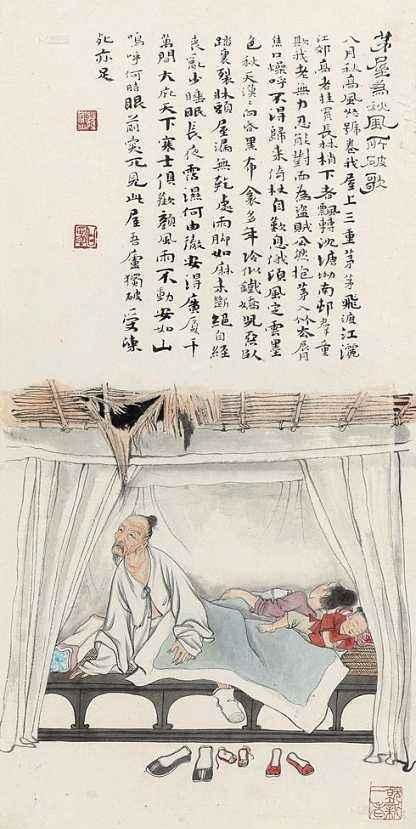 茅屋為秋風所破歌
八月秋高風怒號卷我屋上三重茅茅飛渡江灑
江郊高者挂罥長林梢下者飄轉沈塘坳南邨群童
欺我老無力忍能對面為盜賊公然抱茅入竹去唇
焦口燥呼不得歸來倚杖自歎息俄頃風定雲墨
色秋天漠漠向昏黑布衾多年冷似鐵嬌兒惡臥
踏裏裂牀頭屋漏無乾處雨腳如麻未斷絕自經
喪亂少睡眠長夜霑濕何由徹安得廣厦千
萬間大庇天下寒士俱歡顏風雨不動安如山
嗚呼何時眼前突兀見此屋吾廬獨破受凍
死亦足